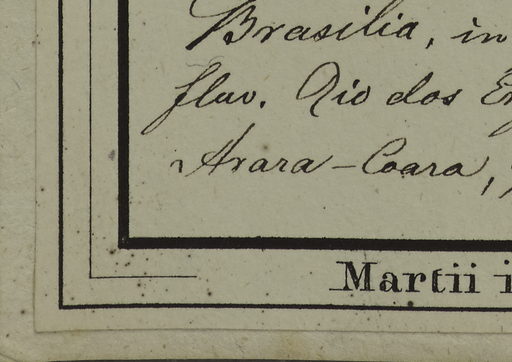 Brasilia, in
fluv. Rio dos
Arara-Coara,
Martii